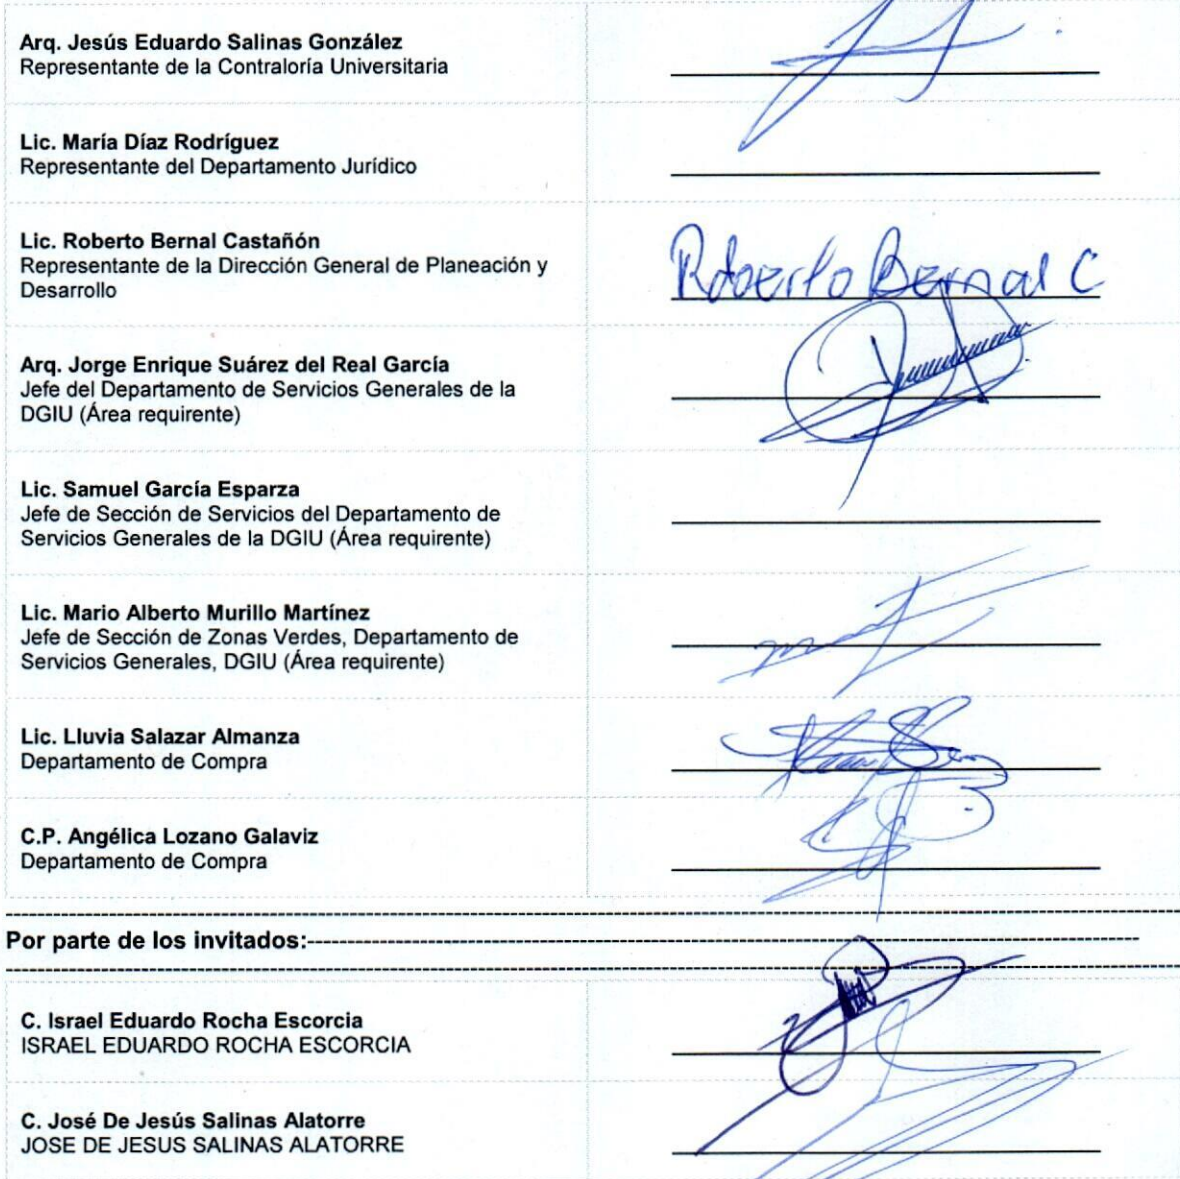 Arq. Jesús Eduardo Salinas González
Representante de la Contraloría Universitaria
Lic. María Díaz Rodríguez
Representante del Departamento Jurídico
Lic. Roberto Bernal Castañón
Representante de la Dirección General de Planeación y
Desarrollo
Roberto Bernal C
Arq. Jorge Enrique Suárez del Real García
Jefe del Departamento de Servicios Generales de la
DGIU (Área requirente)
Lic. Samuel García Esparza
Jefe de Sección de Servicios del Departamento de
Servicios Generales de la DGIU (Área requirente)
Lic. Mario Alberto Murillo Martínez
Jefe de Sección de Zonas Verdes, Departamento de
Servicios Generales, DGIU (Área requirente)
Lic. Lluvia Salazar Almanza
Departamento de Compra
C.P. Angélica Lozano Galaviz
Departamento de Compra
Por parte de los invitados:
C. Israel Eduardo Rocha Escorcia
ISRAEL EDUARDO ROCHA ESCORCIA
C. José De Jesús Salinas Alatorre
JOSE DE JESUS SALINAS ALATORRE